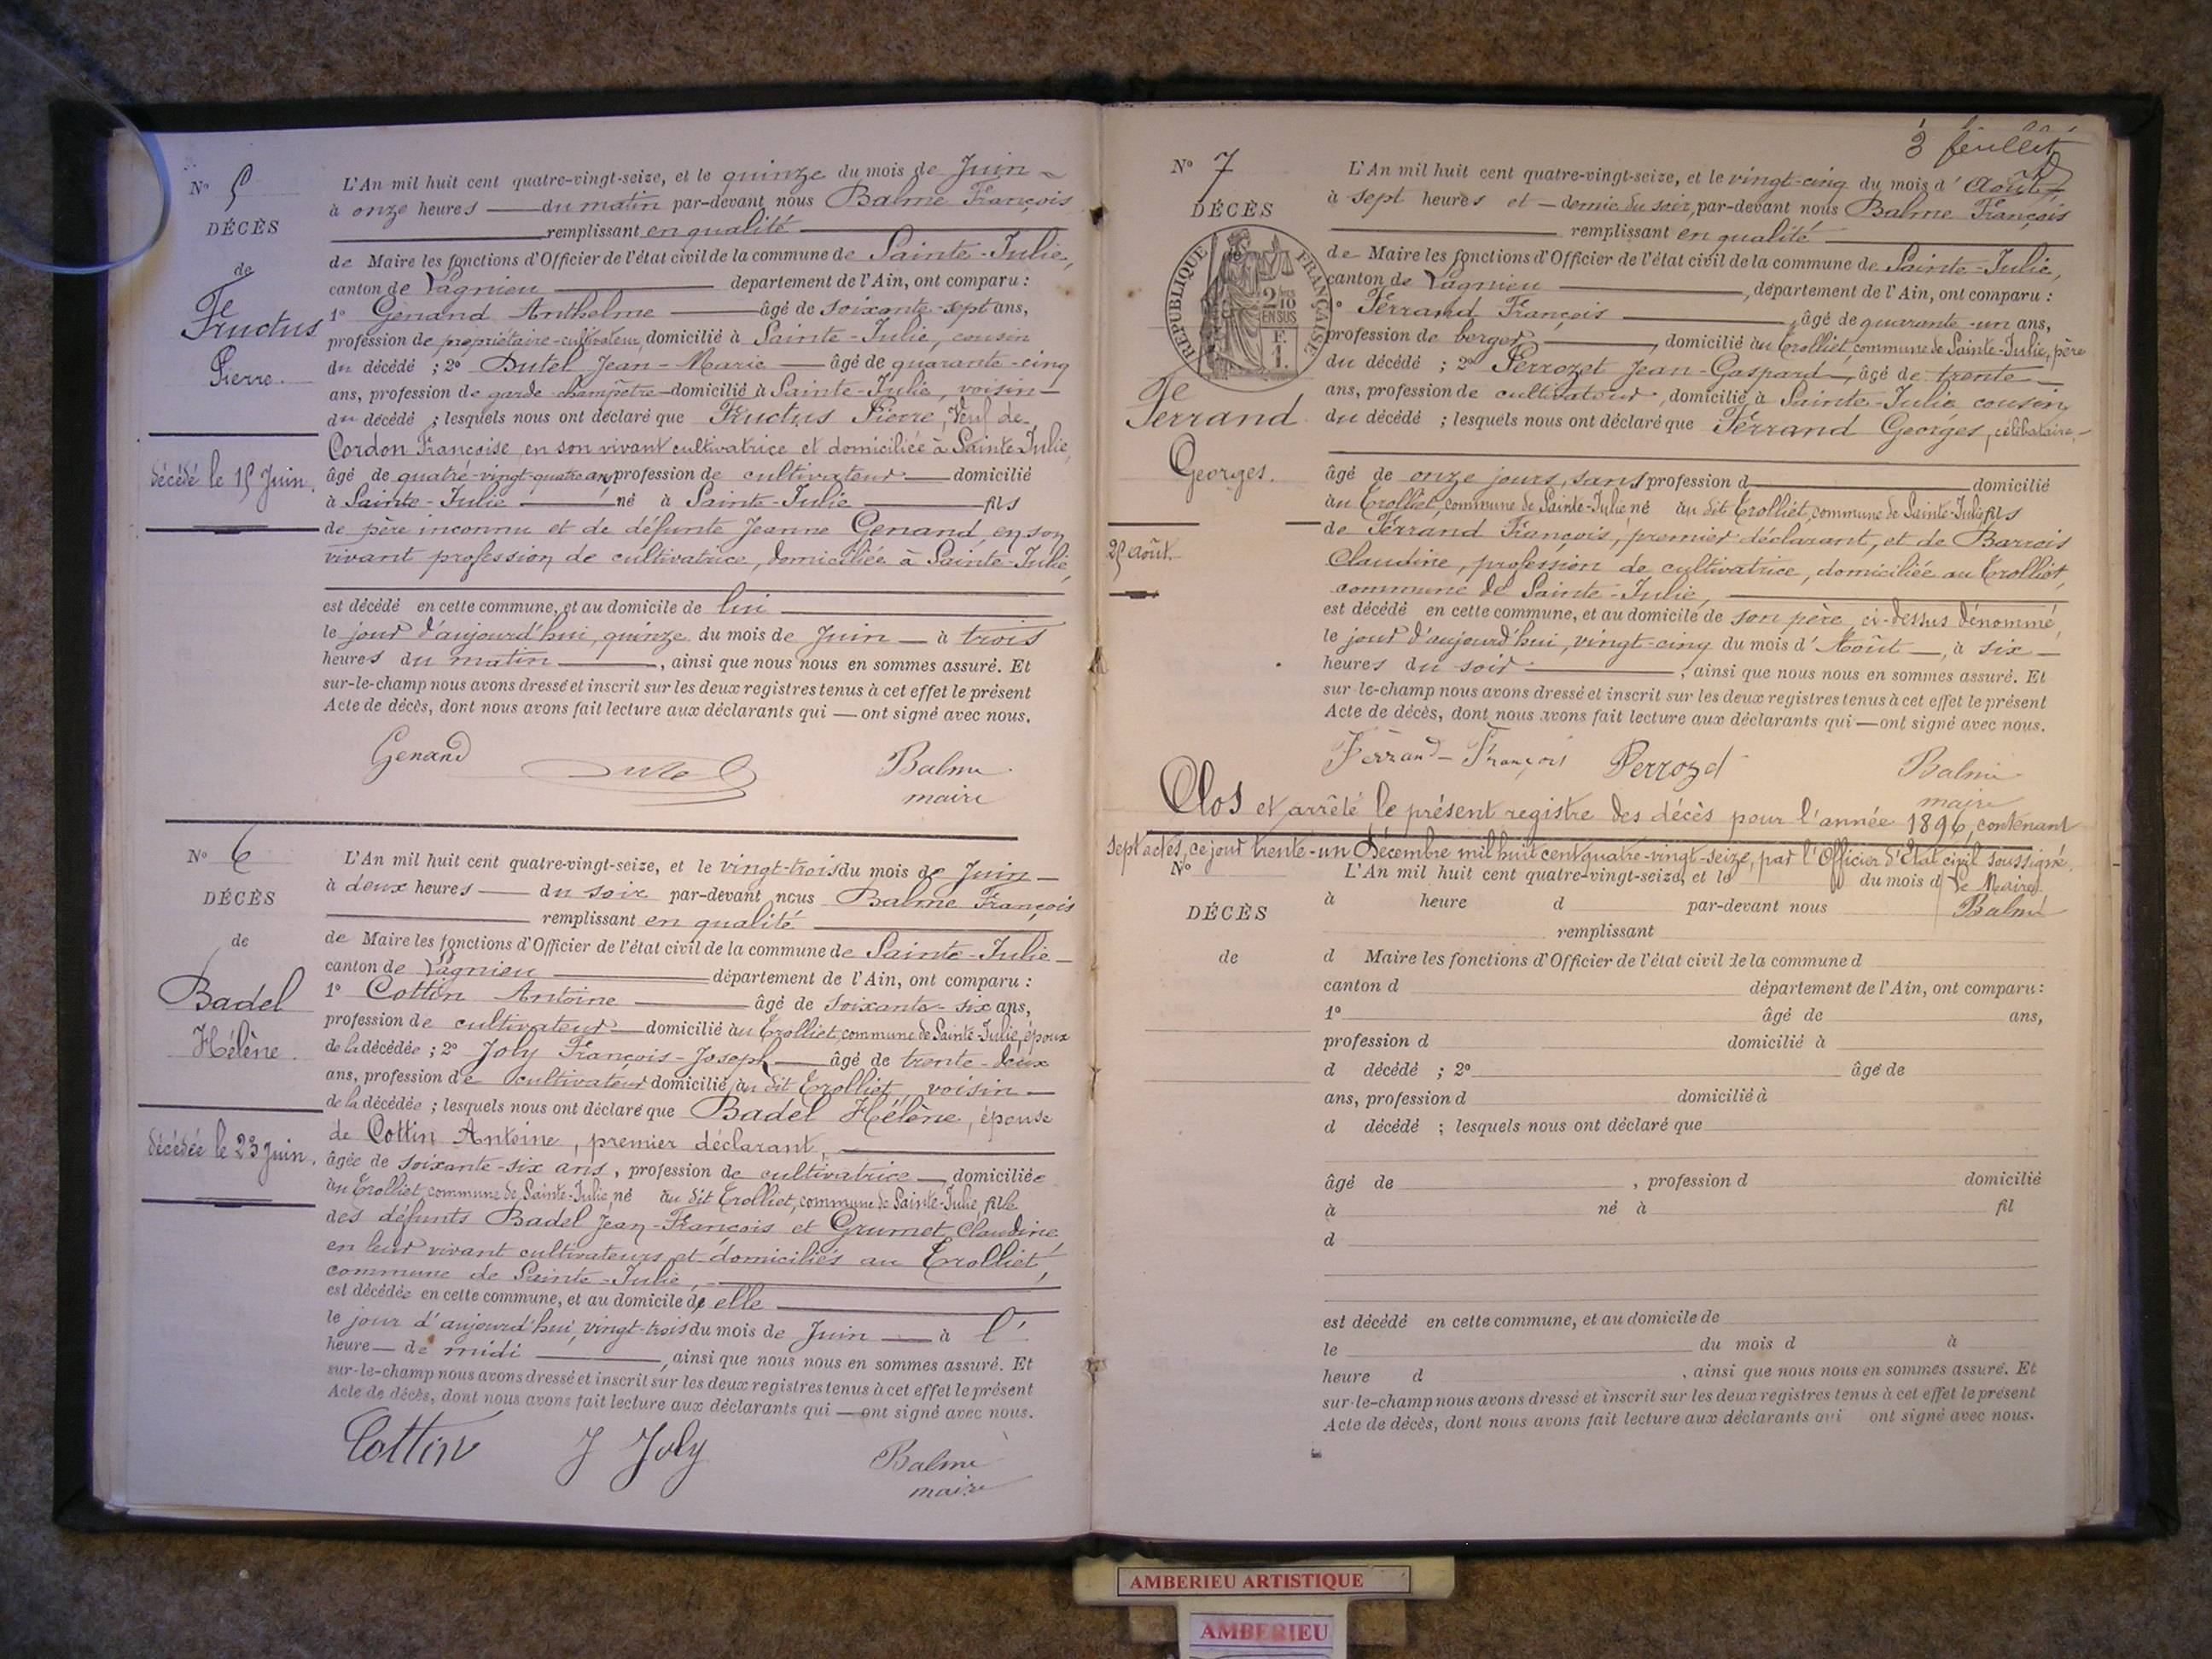 N° 5
DÉCÈS
de
Fructus
Pierre.
décédé le 15 Juin.
L'An mil huit cent quatre-vingt-seize, et le quinze du mois de Juin
à onze heures du matin par-devant nous Balme François
remplissant en qualité
de Maire les fonctions d'Officier de l'état civil de la commune de Sainte-Julie,
canton de Lagnieu département de l'Ain, ont comparu :
1° Genand Anthelme âgé de soixante-sept ans,
profession de propriétaire-cultivateur, domicilié à Sainte-Julie, cousin
du décédé ; 2° Dutel Jean-Marie âgé de quarante-cinq
ans, profession de garde champêtre domicilié à Sainte-Julie, voisin
du décédé ; lesquels nous ont déclaré que Fructus Pierre, veuf de
Cordon Françoise, en son vivant cultivatrice et domiciliée à Sainte-Julie,
âgé de quatre-vingt-quatre ans, profession de cultivateur domicilié
à Sainte-Julie né à Sainte-Julie fils
de père inconnu et de défunte Jeanne Genand, en son
vivant profession de cultivatrice, domiciliée à Sainte-Julie,
est décédé en cette commune, et au domicile de lui
le jour d'aujourd'hui, quinze du mois de Juin à trois
heures du matin, ainsi que nous nous en sommes assuré. Et
sur-le-champ nous avons dressé et inscrit sur les deux registres tenus à cet effet le présent
Acte de décès, dont nous avons fait lecture aux déclarants qui — ont signé avec nous.
Genand Dutel Balme
maire
N° 6
DÉCÈS
de
Badel
Hélène.
décédée le 23 Juin.
L'An mil huit cent quatre-vingt-seize, et le vingt-trois du mois de Juin
à deux heures du soir par-devant nous Balme François
remplissant en qualité
de Maire les fonctions d'Officier de l'état civil de la commune de Sainte-Julie
canton de Lagnieu département de l'Ain, ont comparu :
1° Cottin Antoine âgé de soixante-six ans,
profession de cultivateur domicilié au Trolliet, commune de Sainte-Julie, époux
de la décédée ; 2° Joly François-Joseph âgé de trente-deux
ans, profession de cultivateur domicilié au dit Trolliet, voisin
de la décédée ; lesquels nous ont déclaré que Badel Hélène, épouse
de Cottin Antoine, premier déclarant,
âgée de soixante-six ans, profession de cultivatrice, domiciliée
au Trolliet, commune de Sainte-Julie né au dit Trolliet, commune de Sainte-Julie, fille
des défunts Badel Jean-François et Grumet Claudine,
en leur vivant cultivateurs et domiciliés au Trolliet,
commune de Sainte-Julie,
est décédée en cette commune, et au domicile de elle
le jour d'aujourd'hui, vingt-trois du mois de Juin à l'
heure de midi, ainsi que nous nous en sommes assuré. Et
sur-le-champ nous avons dressé et inscrit sur les deux registres tenus à cet effet le présent
Acte de décès, dont nous avons fait lecture aux déclarants qui — ont signé avec nous.
Cottin J Joly Balme
maire
3 feuillet
N° 7
DÉCÈS
RÉPUBLIQUE FRANÇAISE
2/10 EN SUS
F. 1.
de
Ferrand
Georges.
25 Août.
L'An mil huit cent quatre-vingt-seize, et le vingt-cinq du mois d'Août,
à sept heures et demie du soir, par-devant nous Balme François
remplissant en qualité
de Maire les fonctions d'Officier de l'état civil de la commune de Sainte-Julie,
canton de Lagnieu, département de l'Ain, ont comparu :
1° Ferrand François, âgé de quarante-un ans,
profession de berger, domicilié au Trolliet, commune de Sainte-Julie, père
du décédé ; 2° Perrozet Jean-Gaspard, âgé de trente
ans, profession de cultivateur, domicilié à Sainte-Julie cousin
du décédé ; lesquels nous ont déclaré que Ferrand Georges, célibataire,
âgé de onze jours, sans profession d domicilié
au Trolliet, commune de Sainte-Julie né au dit Trolliet, commune de Sainte-Julie fils
de Ferrand François, premier déclarant, et de Barrois
Claudine, profession de cultivatrice, domiciliée au Trolliet,
commune de Sainte-Julie,
est décédé en cette commune, et au domicile de son père, ci-dessus dénommé,
le jour d'aujourd'hui, vingt-cinq du mois d'Août, à six
heures du soir, ainsi que nous nous en sommes assuré. Et
sur-le-champ nous avons dressé et inscrit sur les deux registres tenus à cet effet le présent
Acte de décès, dont nous avons fait lecture aux déclarants qui — ont signé avec nous.
Ferrand François Perrozet Balme
maire
Clos et arrêté le présent registre des décès pour l'année 1896, contenant
sept actes, ce jour trente-un Décembre mil huit cent quatre-vingt-seize, par l'Officier d'Etat civil soussigné.
Le Maire
Balme
N°
DÉCÈS
de
L'An mil huit cent quatre-vingt-seize, et le du mois d
à heure d par-devant nous
remplissant
d Maire les fonctions d'Officier de l'état civil de la commune d
canton d département de l'Ain, ont comparu :
1° âgé de ans,
profession d domicilié à
d décédé ; 2° âgé de
ans, profession d domicilié à
d décédé ; lesquels nous ont déclaré que
âgé de , profession d domicilié
à né à fil
d
est décédé en cette commune, et au domicile de
le du mois d à
heure d , ainsi que nous nous en sommes assuré. Et
sur-le-champ nous avons dressé et inscrit sur les deux registres tenus à cet effet le présent
Acte de décès, dont nous avons fait lecture aux déclarants qui ont signé avec nous.
AMBERIEU ARTISTIQUE
AMBERIEU